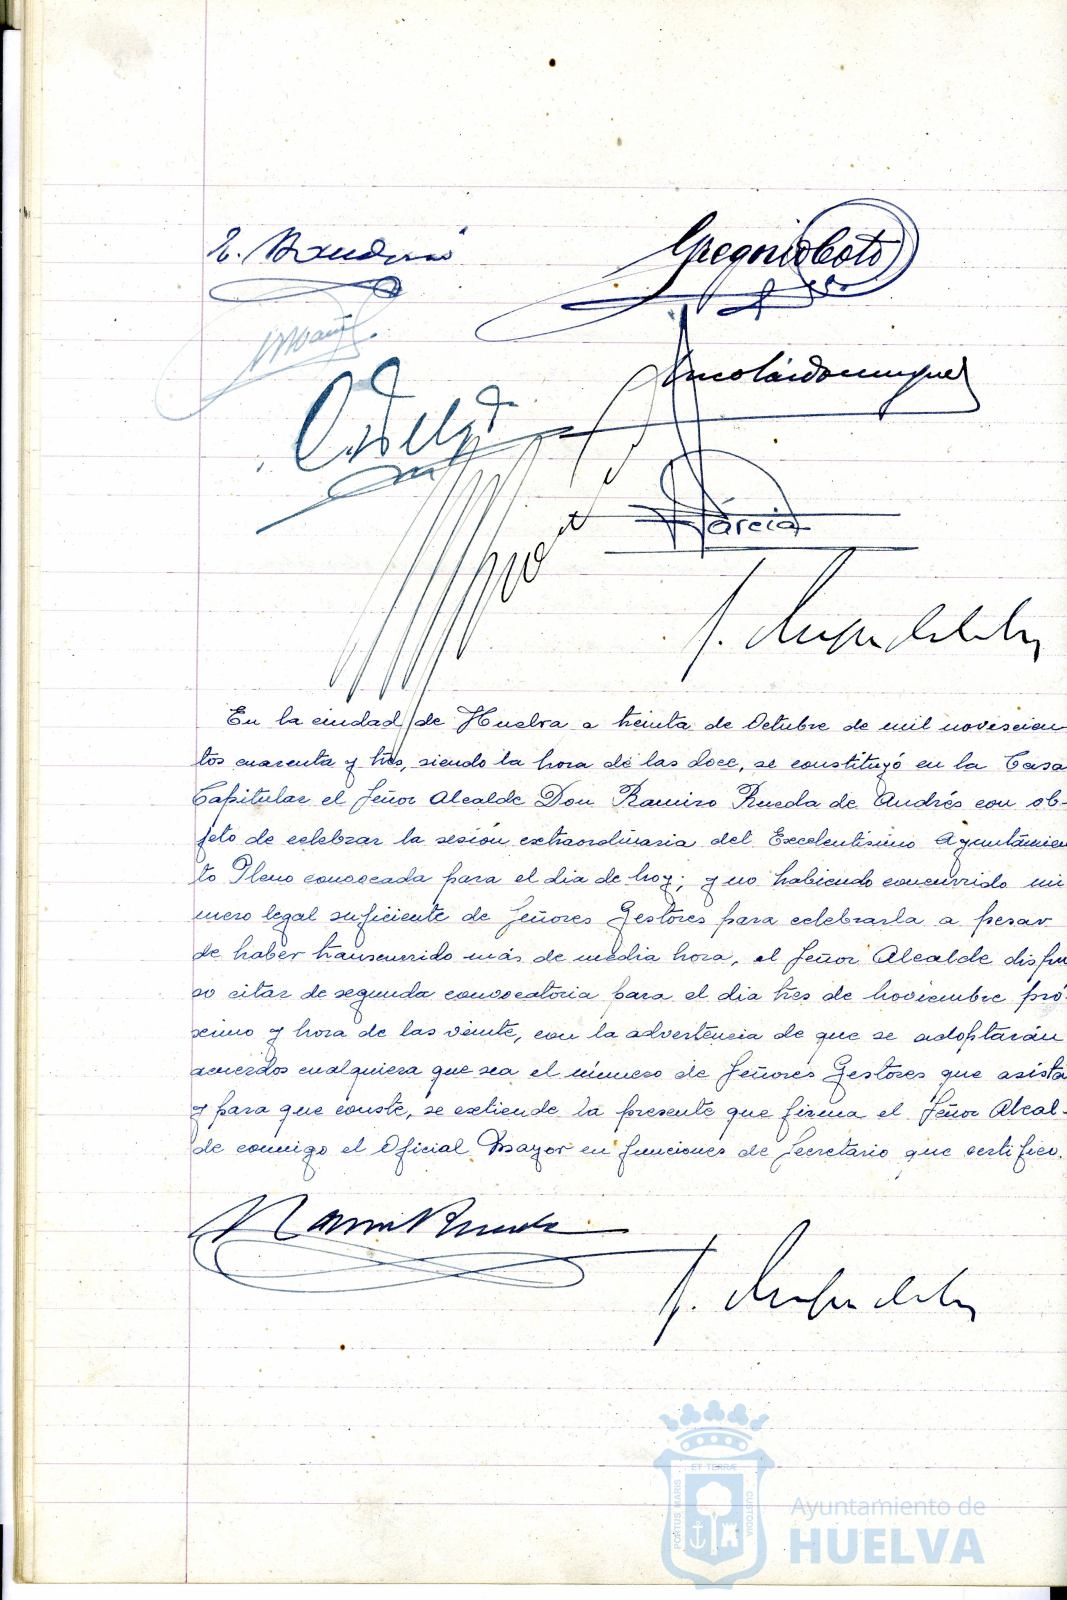 Gregorio Coto
García
En la ciudad de Huelva a treinta de Octubre de mil novescien
tos cuarenta y trés, siendo la hora de las doce, se constituyó en la Casa
Capitular el Señor Alcalde Don Ramiro Rueda de Andrés con ob-
jeto de celebrar la sesión extraordinaria del Excelentísimo Ayuntamien
to Pleno convocada para el dia de hoy; y no habiendo concurrido nú
mero legal suficiente de Señores Gestores para celebrarla a pesar
de haber transcurrido más de media hora, el Señor Alcalde dispu
so citar de segunda convocatoria para el dia tres de noviembre pró-
ximo y hora de las veinte, con la advertencia de que se adoptarán
acuerdos cualquiera que sea el número de Señores Gestores que asista
y para que conste, se extiende la presente que firma el Señor Alcal-
de conmigo el Oficial Mayor en funciones de Secretario que certifico.
Ramiro Rueda
ET TERRÆ
PORTUS MARIS
CUSTODIA
Ayuntamiento de
HUELVA